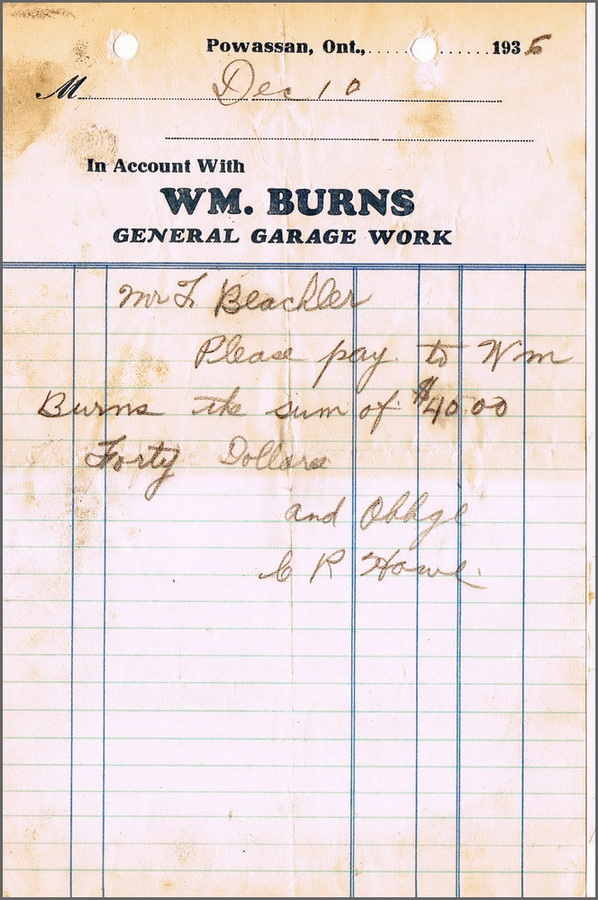 Powassan, Ont., 1935
M Dec 10
In Account With
WM. BURNS
GENERAL GARAGE WORK
Mr F. Beachler
Please pay to Wm
Burns the sum of $40.00
Forty Dollars
and Oblige
C R Howe.